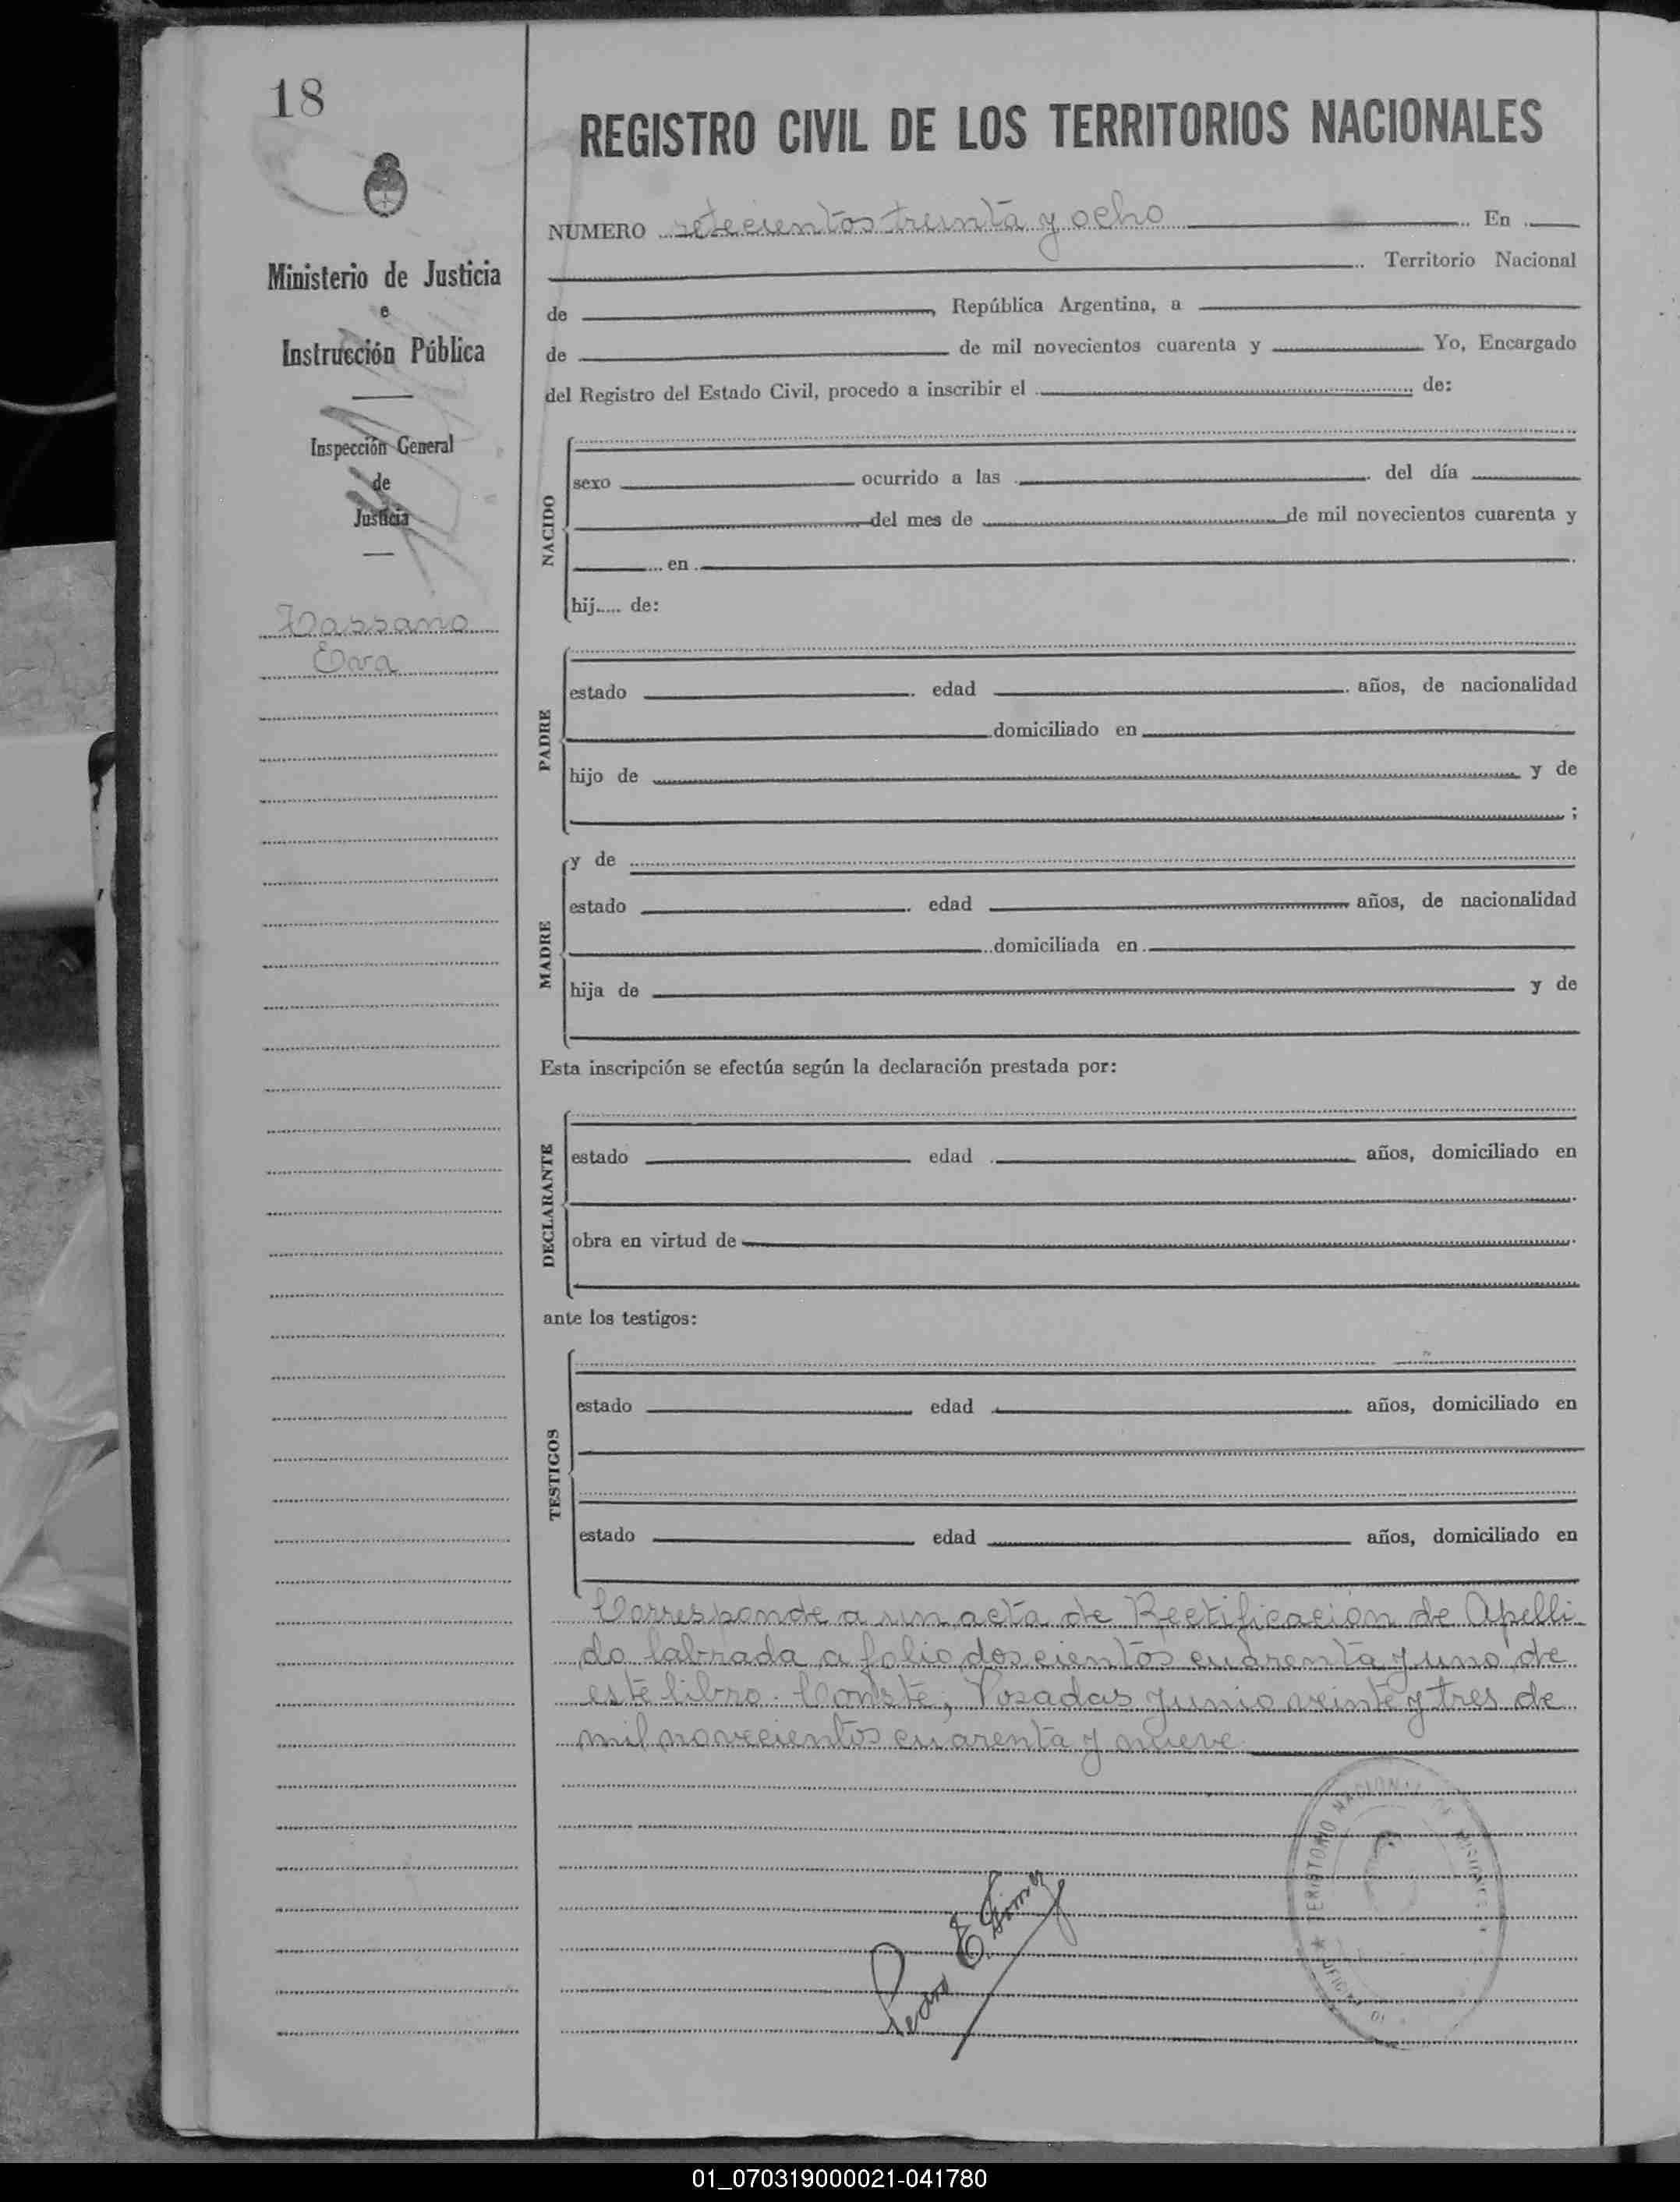 18
REGISTRO CIVIL DE LOS TERRITORIOS NACIONALES
Ministerio de Justicia
e
Instrucción Pública
Inspección General
de
Justicia
Eva
NUMERO setecientos treinta y ocho En
Territorio Nacional
de , República Argentina, a
de de mil novecientos cuarenta y Yo, Encargado
del Registro del Estado Civil, procedo a inscribir el de:
NACIDO
sexo ocurrido a las del día
del mes de de mil novecientos cuarenta y
en
hij..... de:
PADRE
estado edad años, de nacionalidad
domiciliado en
hijo de y de
;
MADRE
y de
estado edad años, de nacionalidad
domiciliada en
hija de y de
Esta inscripción se efectúa según la declaración prestada por:
DECLARANTE
estado edad años, domiciliado en
obra en virtud de
ante los testigos:
TESTIGOS
estado edad años, domiciliado en
estado edad años, domiciliado en
Corresponde a un acta de Rectificación de Apelli-
do labrada a folio doscientos cuarenta y uno de
este libro. Conste, Posadas junio veinte y tres de
mil novecientos cuarenta y nueve
TERRITORIO NACIONAL DE MISIONES
Pedro E.
01_070319000021-041780